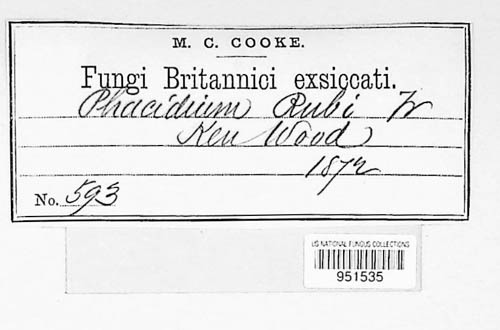 M. C. COOKE.
Fungi Britannici exsiccati.
Phacidium Rubi Fr
Ken Wood
1872
No. 593
US NATIONAL FUNGUS COLLECTIONS
951535